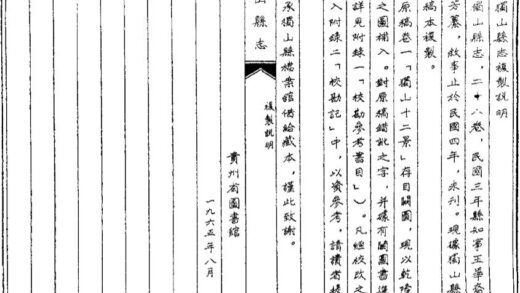 獨山縣志複製說明
獨山縣志，二十八卷，民國三年縣知事王華裔
芳纂，敘事止於民國四年，未刊。現據獨山縣
稿本複製。
原稿卷一「獨山十二景」存目闕圖，現以乾隆
之圖補入。對原稿錯訛之字，並據有關圖書進
詳見附錄一「校勘參考書目」）。凡經校改之
入附錄二「校勘記」中，以資參考，請讀者
承獨山縣檔案館借給藏本，謹此致謝。
山縣志
複製說明
貴州省圖書館
一九六五年八月